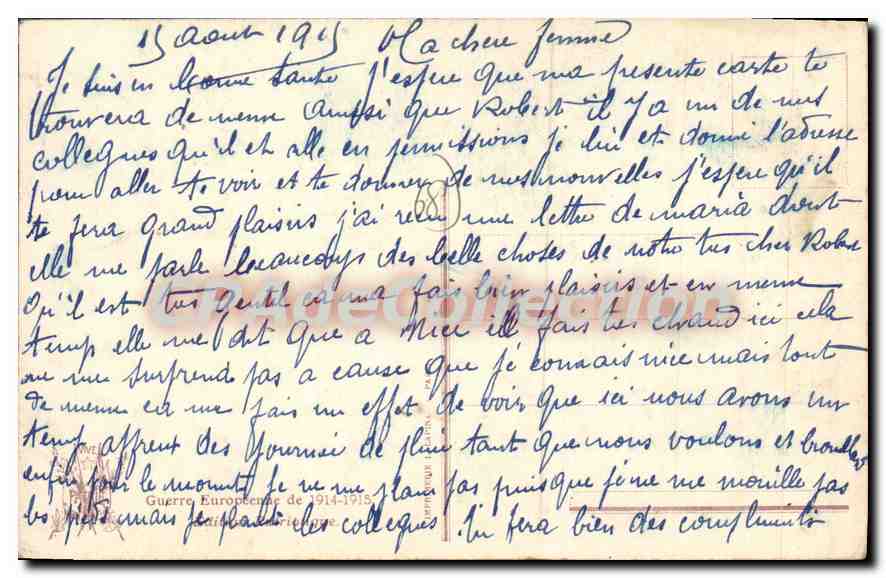 15 aout 1915 Ma chere femme
Je suis en bonne sante j'espere que ma presente carte te
trouvera de meme ainsi que Robert il y a un de nos
collegues qu'il et alle en permissions je lui et donné l'adresse
pour aller te voir et te donner de mes nouvelles j'espere qu'il
te fera grand plaisirs j'ai recu une lettre de maria dont
elle me parle beaucoups des belle choses de notre tres cher Robert
Qu'il est tres gentil ca ma fais bien plaisirs et en meme
temps elle me dit que a Nice ill fais tres chaud ici cela
ne me surprend pas a cause que je connais nice mais tout
de meme ca me fais un effet de voir que ici nous avons un
temp affreux des journée de pluie tant que nous voulons et brouillard
enfin pour le moment je ne me plain pas puisque je ne me mouille pas
les pied mais je plaint les collegues. Tu fera bien des compliments
68
CPAdeCollection
Guerre Européenne de 1914-1915
Edition Patriotique
IMPRIMEUR